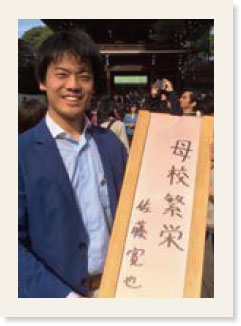 母校繁栄
佐藤寛也